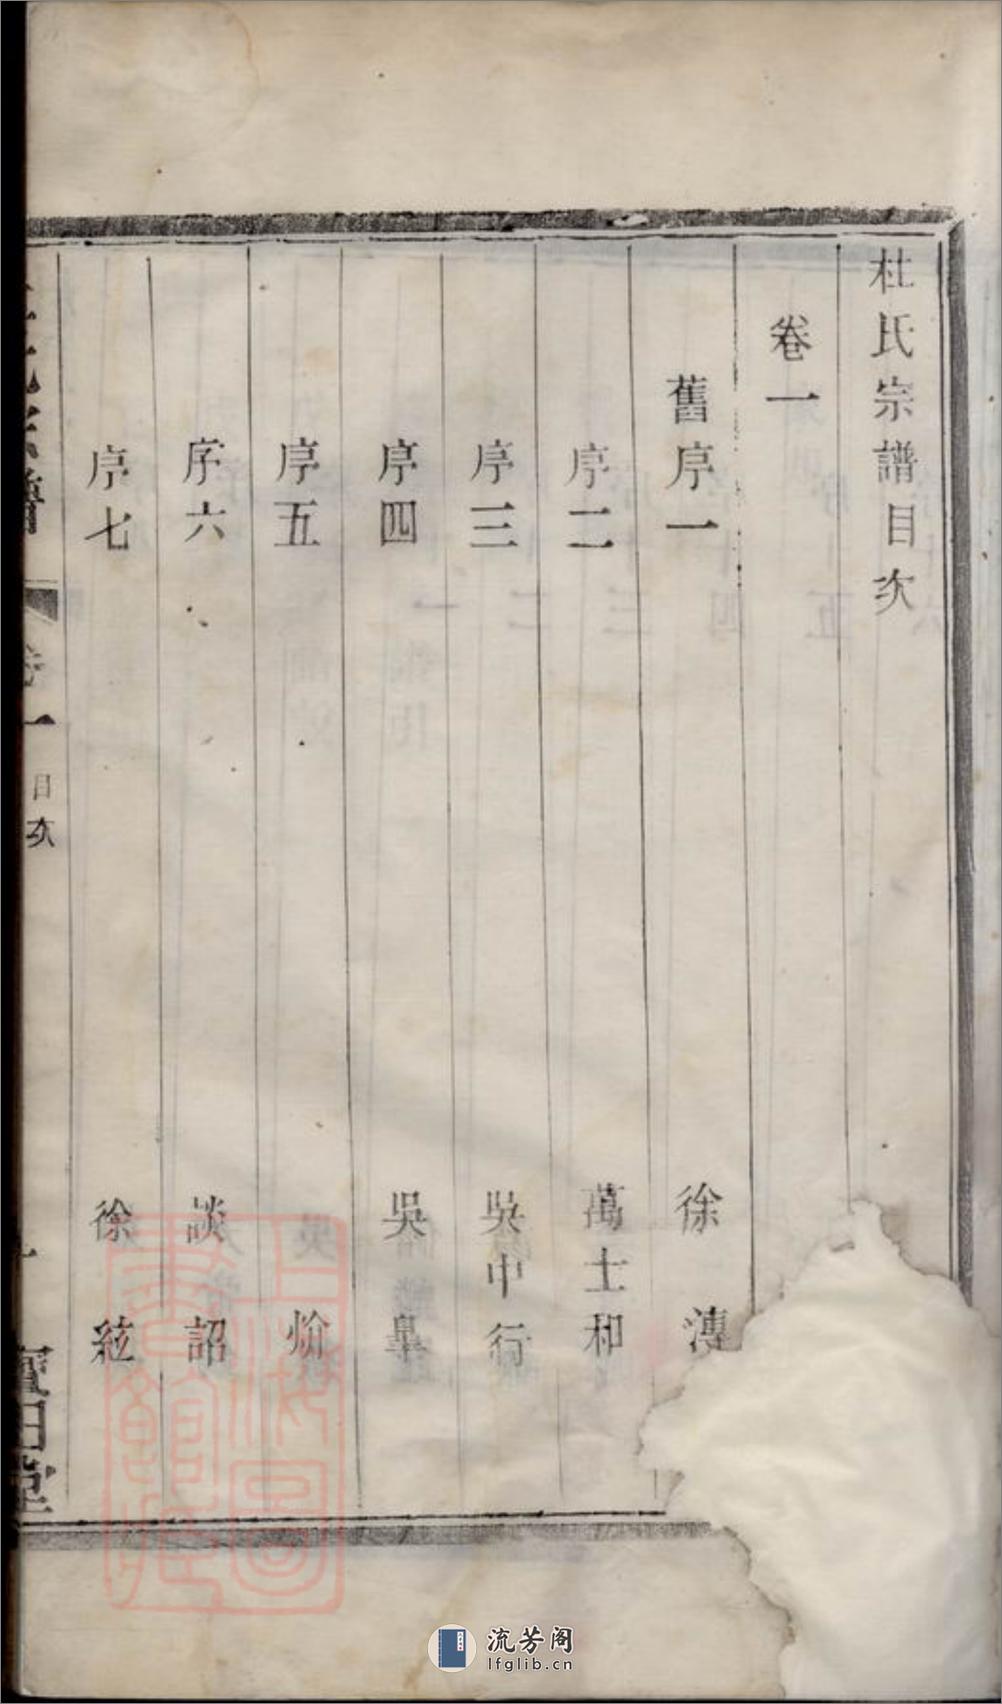 杜氏宗譜目次
卷一
舊序一 徐溥
序二 萬士和
序三 吳中行
序四 吳
序五
序六 談詔
序七 徐絃
宗譜
卷一
目次
一
寶田堂
上海圖書館藏
流芳阁
lfglib.cn